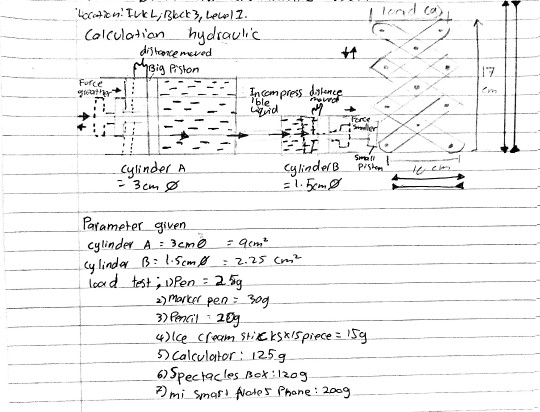 Location: IVKL, Block 3, Level 2.
Calculation hydraulic
load (a)
distance moved
Big Piston
Force greather
Incompressible liquid
distance moved
Force smaller
small piston
17 cm
10 cm
cylinder A
= 3cm Ø
cylinder B
= 1.5cm Ø
Parameter given
cylinder A = 3cm Ø = 9cm²
cylinder B = 1.5cm Ø = 2.25 cm²
load test ; 1) Pen = 25g
2) Marker pen = 30g
3) Pencil = 20g
4) Ice cream sticks x 15 piece = 15g
5) Calculator : 125g
6) Spectacles Box : 120g
7) mi smart Note 5 Phone : 200g